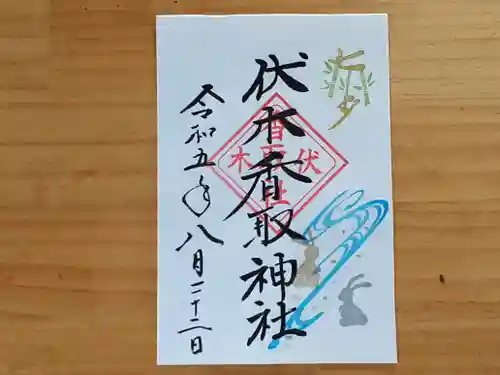 七夕
伏木香取神社
伏木香取社
令和五年八月二十二日